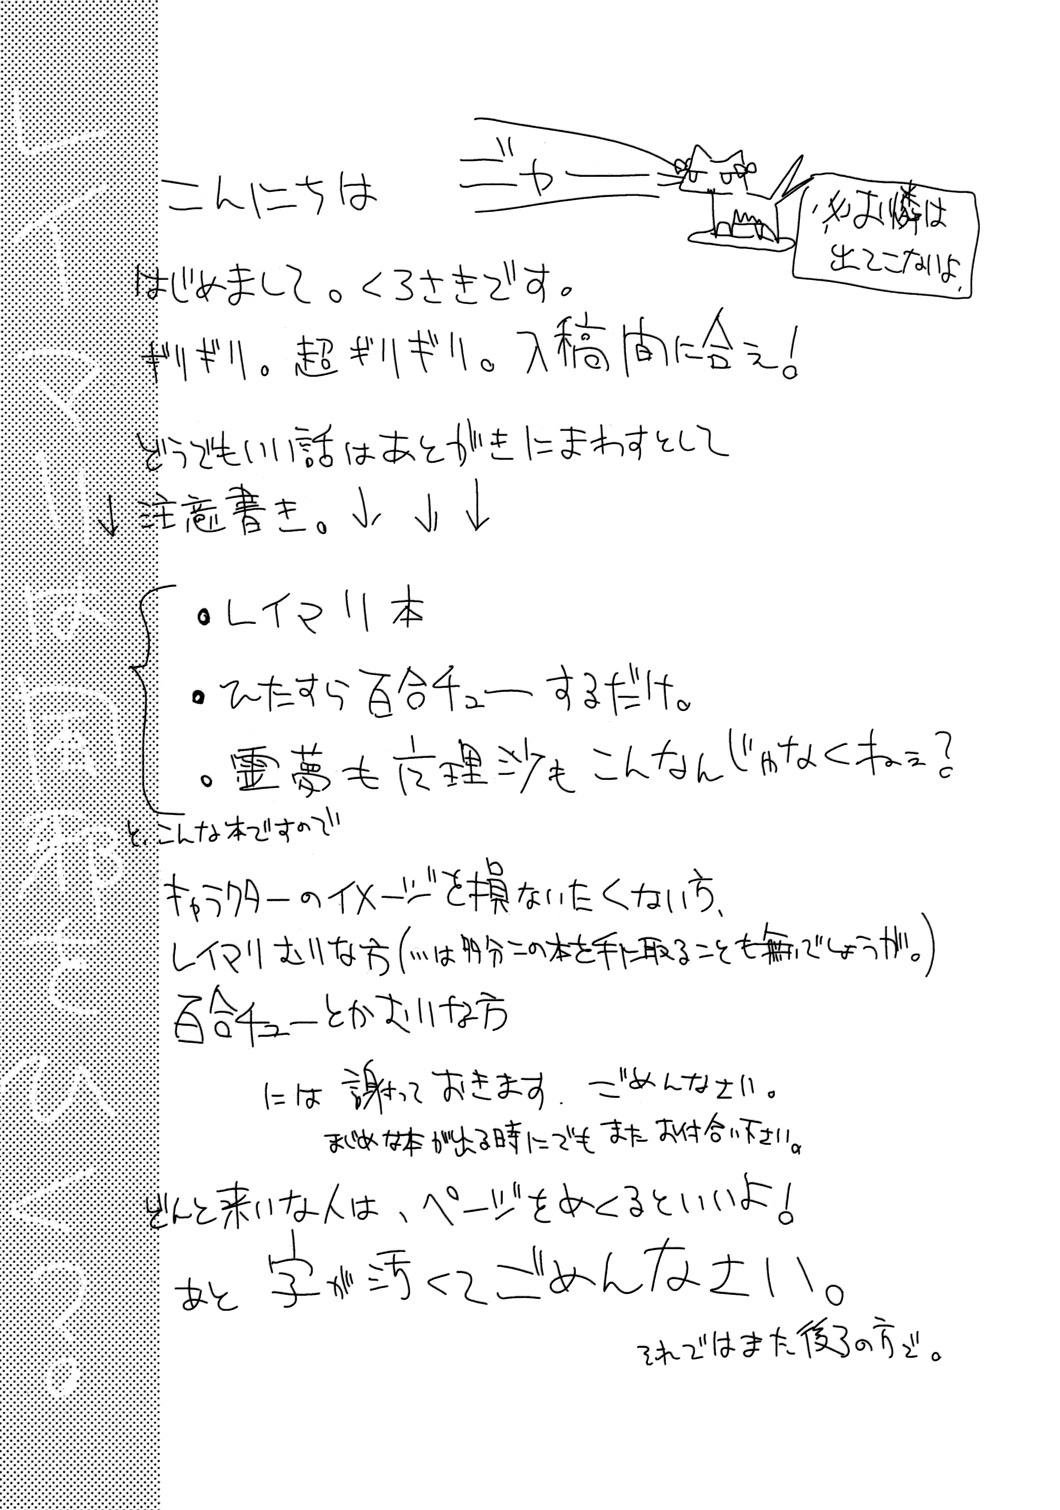 こんにちは
ゴャー
※お燐は
出てこないよ
はじめまして。くろさきです。
ギリギリ。超ギリギリ。入稿間に合え!
どうでもいい話はあとがきにまわすとして
↓注意書き。↓↓↓
・レイマリ本
・ひたすら百合チューするだけ。
・霊夢も魔理沙もこんなんじゃなくねぇ?
と、こんな本ですので
キャラクターのイメージを損ないたくない方、
レイマリむりな方(…は多分この本を手に取ることも無いでしょうが。)
百合チューとかむりな方
には 謝っておきます. ごめんなさい。
まじめな本が出る時にでもまたお付合い下さい。
どんと来いな人は、ページをめくるといいよ!
あと 字が汚くてごめんなさい。
それではまた後ろの方で。
レイマリは風邪をひいてる。